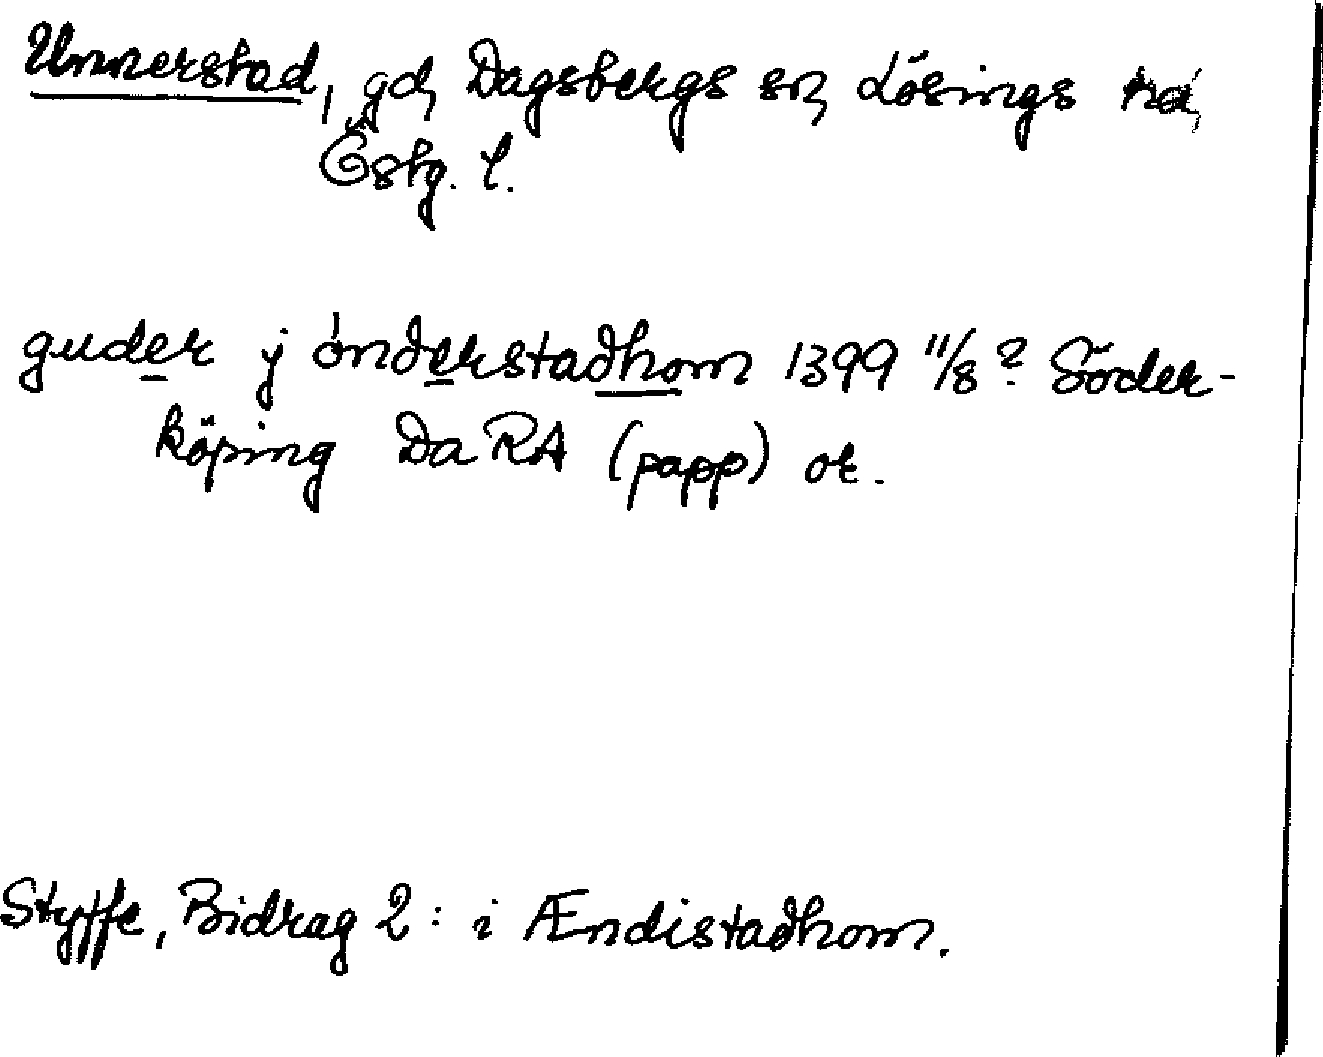 Unnerstad, gd, Dagsbergs sn, Lösings hd,
Östg. l.
guder j ónderstadhom 1399 11/8? Söder-
köping Da RA (papp) ot.
Styffe, Bidrag 2: i Ændistadhom.